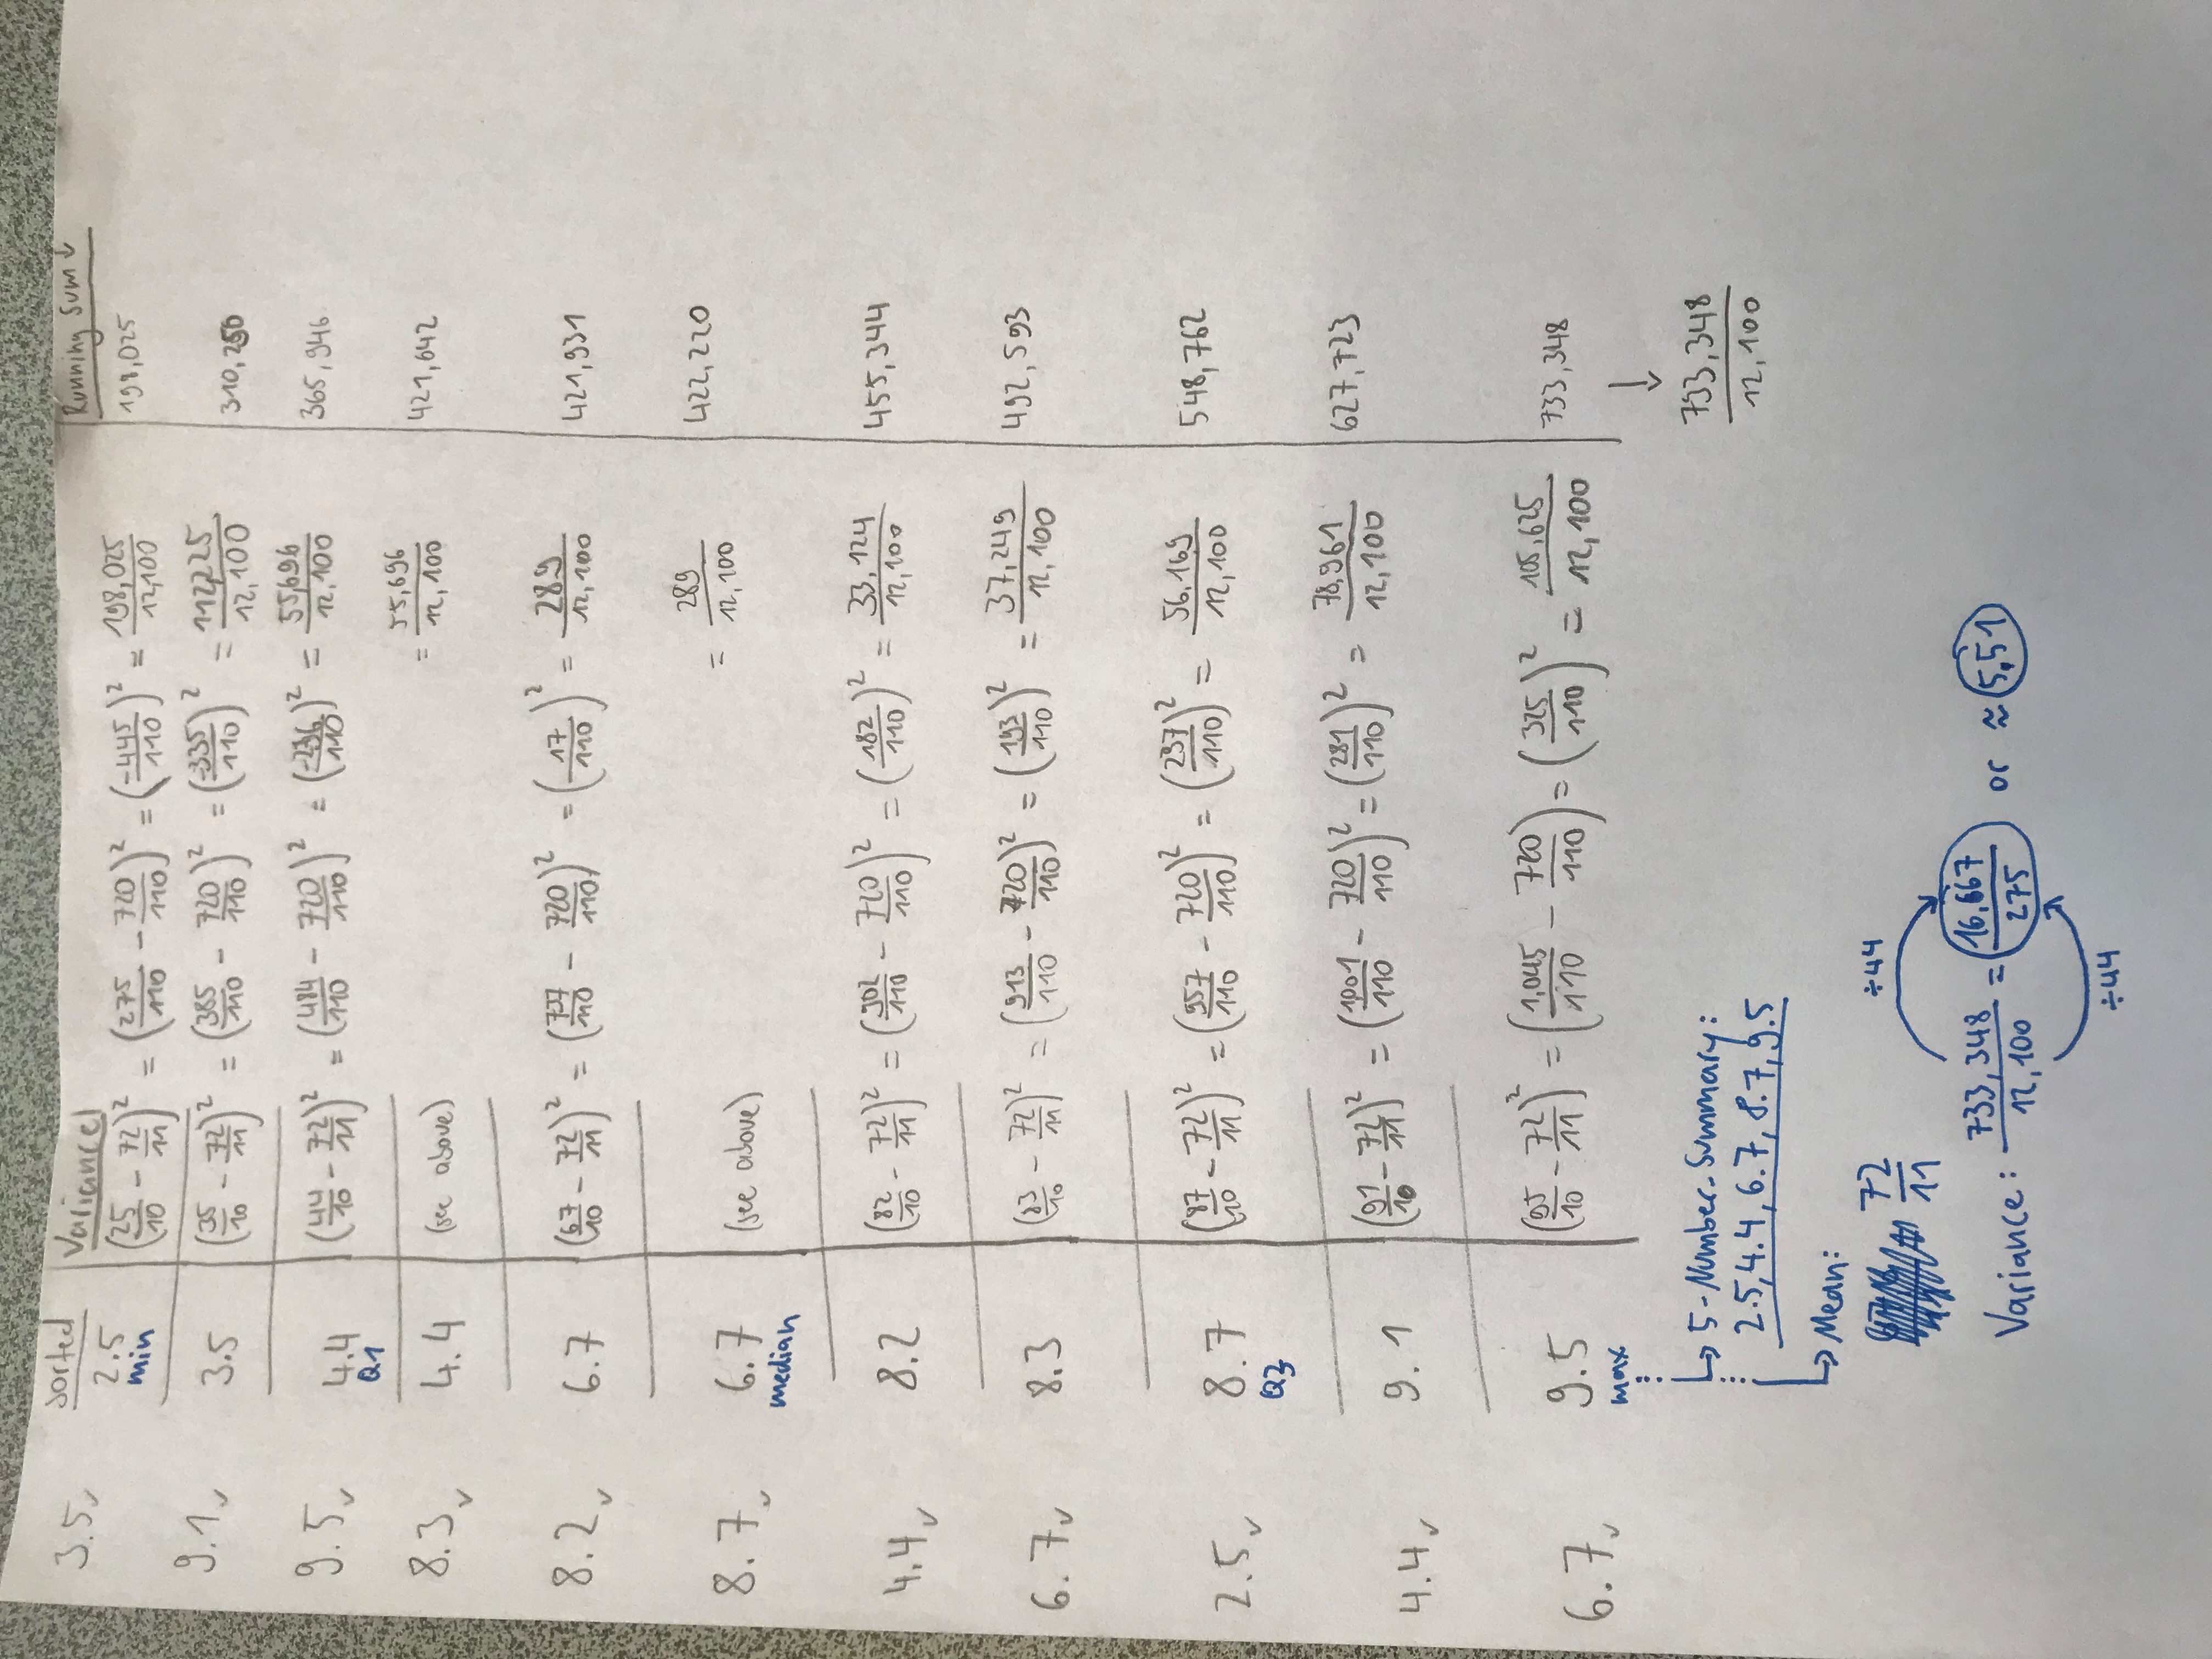 Sorted Variance Running Sum ↓
3.5 ✓ 2.5 (25/10 - 72/11)² = (275/110 - 720/110)² = (-445/110)² = 198,025/12,100 198,025
min
9.1 ✓ 3.5 (35/10 - 72/11)² = (385/110 - 720/110)² = (-335/110)² = 112225/12,100 310,250
9.5 ✓ 4.4 (44/10 - 72/11)² = (484/110 - 720/110)² = (-236/110)² = 55,696/12,100 365,946
Q1
8.3 ✓ 4.4 (see above) = 55,696/12,100 421,642
8.2 ✓ 6.7 (67/10 - 72/11)² = (737/110 - 720/110)² = (17/110)² = 289/12,100 421,931
8.7 ✓ 6.7 (see above) = 289/12,100 422,220
median
4.4 ✓ 8.2 (82/10 - 72/11)² = (902/110 - 720/110)² = (182/110)² = 33,124/12,100 455,344
6.7 ✓ 8.3 (83/10 - 72/11)² = (913/110 - 720/110)² = (193/110)² = 37,249/12,100 492,593
2.5 ✓ 8.7 (87/10 - 72/11)² = (957/110 - 720/110)² = (237/110)² = 56,169/12,100 548,762
Q3
4.4 ✓ 9.1 (91/10 - 72/11)² = (1001/110 - 720/110)² = (281/110)² = 78,961/12,100 627,723
6.7 ✓ 9.5 (95/10 - 72/11)² = (1,045/110 - 720/110) = (325/110)² = 105,625/12,100 733,348
max
↓
733,348/12,100
↳ 5-Number-Summary:
2.5, 4.4, 6.7, 8.7, 9.5
↳ Mean:
72/11
÷44
Variance: 733,348/12,100 = 16,667/275 or ≈ 5,51
÷44